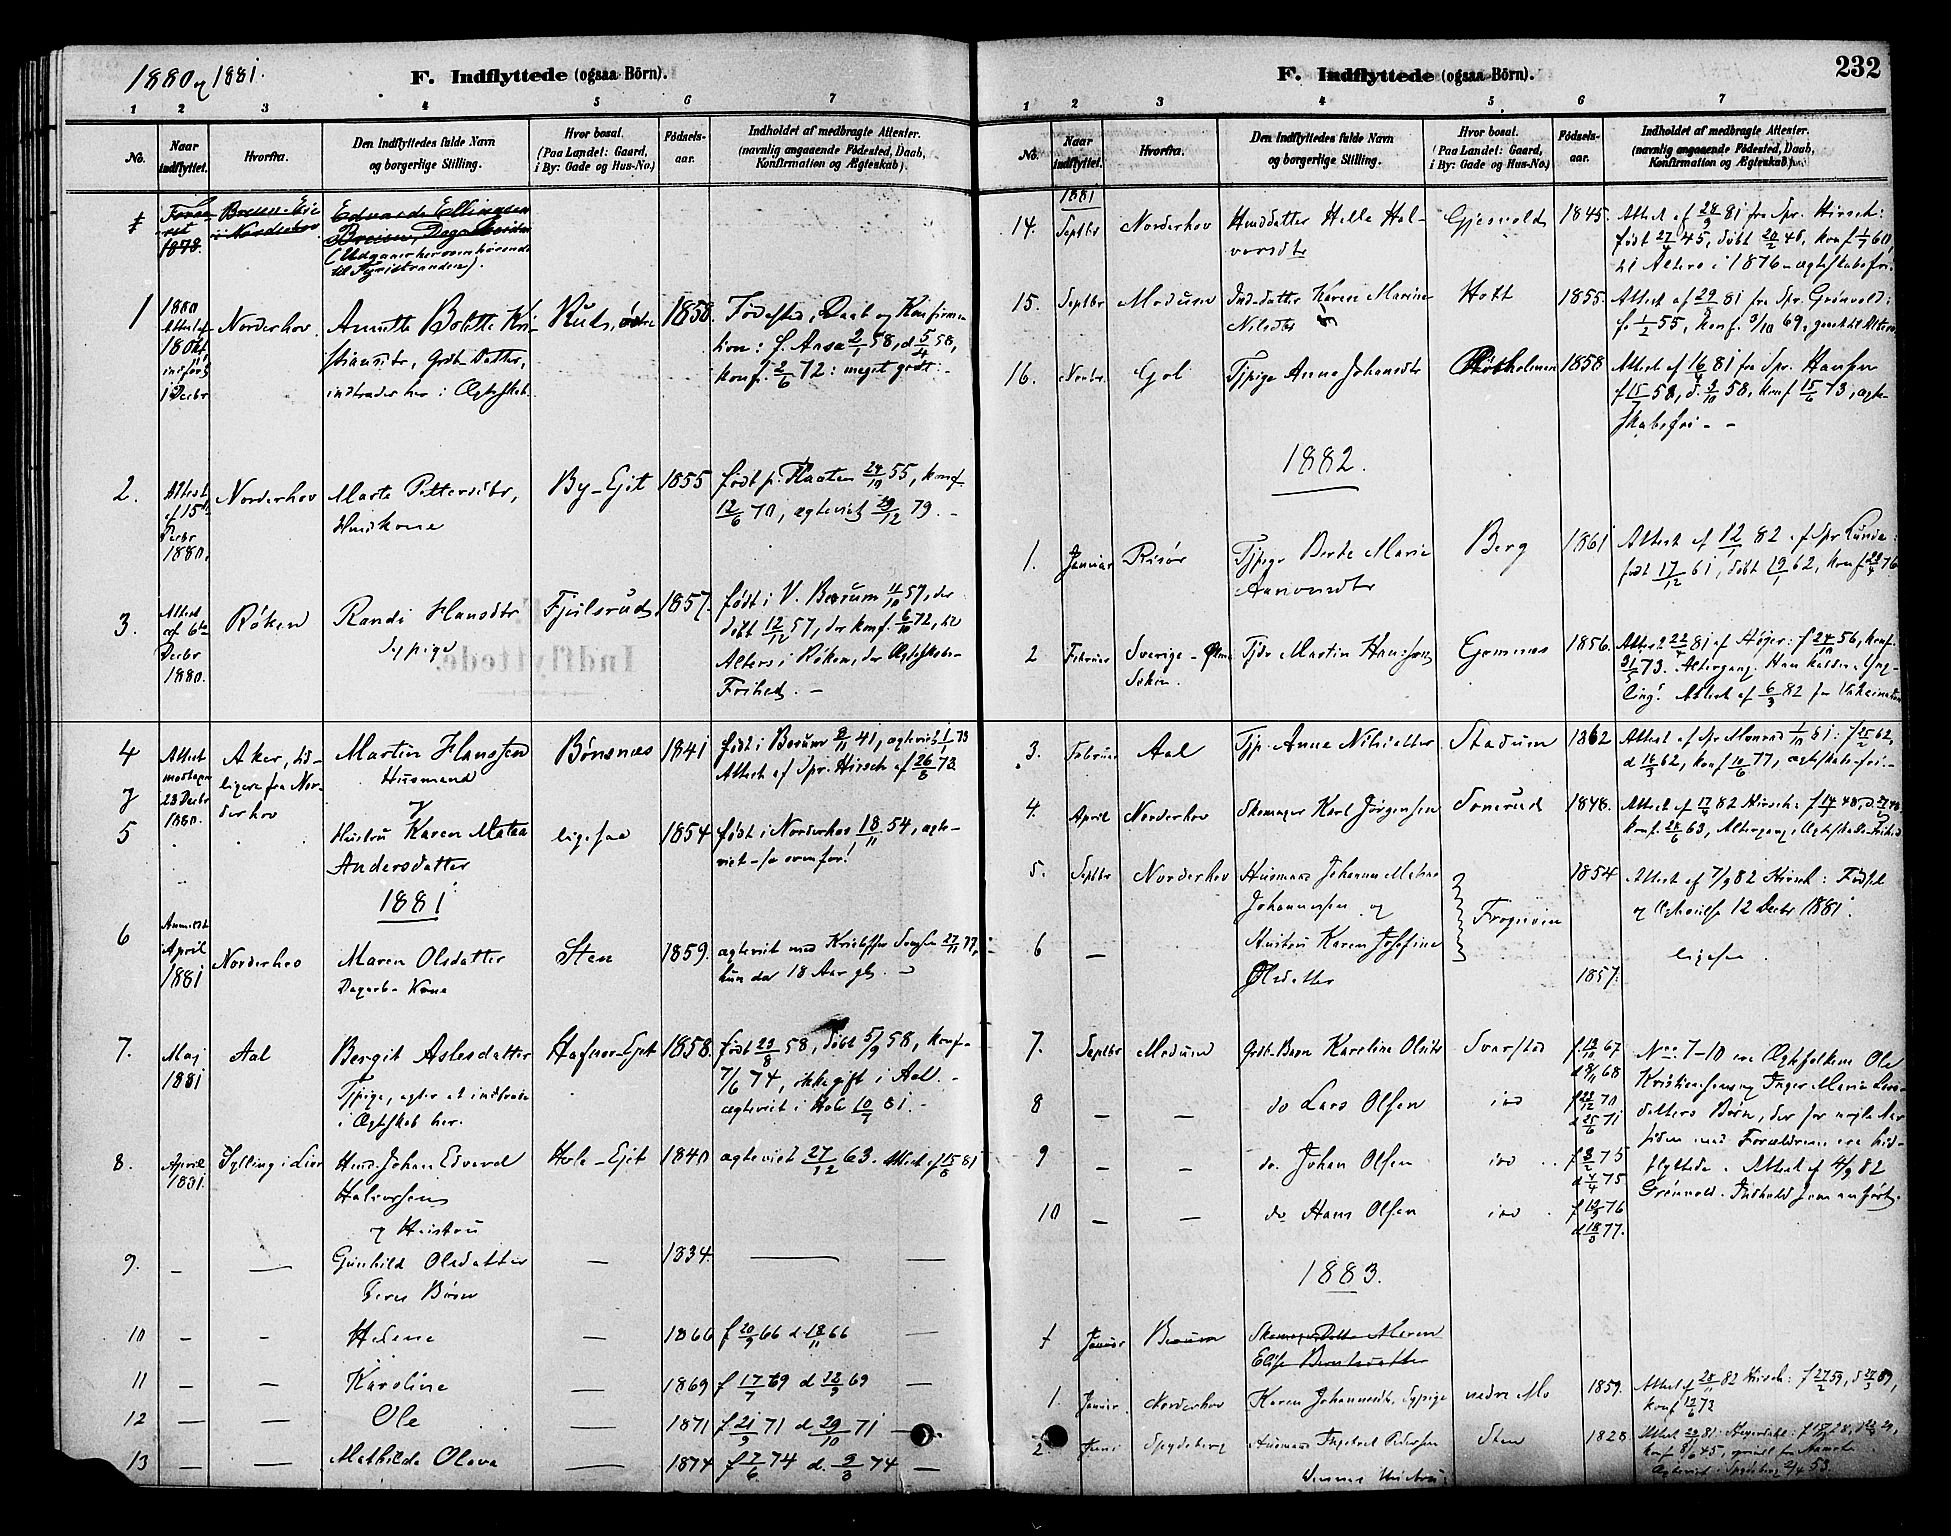 1880 og 1881.
F. Indflyttede (ogsaa Börn).
1 2 3 4 5 6 7
No.
Naar indflyttet.
Hvorfra.
Den Indflyttedes fulde Navn
og borgerlige Stilling.
Hvor bosat.
(Paa Landet: Gaard,
i By: Gade og Hus-No.)
Fødsels-
aar.
Indholdet af medbragte Attester.
(navnlig angaaende Fødested, Daab,
Konfirmation og Ægteskab).
1878.
Edvard Ellingsen
1
1880
Norderhov
Annette Bolette Kri-
stiansdtr, Grdb. Datter,
indtræder her i Ægteskab.
Rud, østre
1858.
Fødested, Daab og Konfirma-
tion: f. Aasa 2/1 58, d 5/4 58,
konf. 2/6 72: meget godt.-
2.
Attest
af 15
Decbr
1880.
Norderhov
Marte Pettersdtr,
Huskone
By-Ejet
1855
født p. Flaaten 24/10 55, konf.
12/6 70, ægteviet 29/12 79.-
3.
Attest
af 6te
Decbr
1880.
Røken
Randi Hansdtr
Tjpige
Fjeldsrud
1857.
født i V. Bærum 4/10 57, der
døbt 12/12 57, der konf. 6/10 72, til
Alters i Røken, der Ægteskabs-
Frihed.-
4
Attest
modtagen
23 Decbr
1880.
Aker, tid-
ligere fra Nor-
derhov
Martin Hansen
Husmand
Bønsnes
1841
født i Bærum 8/11 41, ægteviet 1/1 73
Attest af Spr. Hirsch af 26/8 73
og
5
Hustru Karen Matea
Andersdatter
ligesaa
1854
født i Norderhov 18/11 54, ægte-
viet - se ovenfor!
1881
6
Anmeldt
April
1881
Norderhov
Maren Olsdatter
Dagarb. Kone
Sten
1859.
ægteviet med Kristoffer 27/11 77,
hun da 18 Aar gl.
7.
Maj
1881
Aal
Bergit Aslesdatter
Tjpige, agter at indtræde
i Ægteskab her.
Hafnor-Ejet
1858.
født 23/8 58, døbt 5/9 58, konf.
7/6 74, ikke gift i Aal.-
ægteviet i Hole 10/7 81.-
8.
April
1881.
Sylling i Lier
Husm. Johan Edvard
Halvorsen
og Hustru
Hole-Ejet
1840
ægteviet 27/12 63. Attest af 15/8 81
9.
Gunhild Olsdatter
Deres Børn
1834.
10
Helene
1866
f 20/9 66 d 18/11 66
11
Karoline
1869
f 17/7 69 d 12/9 69
12
Ole
1871
f 21/9 71 d 29/10 71
13
Mathilde Olava
1874
f 7/6 74 d. 9/8 74
232
F. Indflyttede (ogsaa Börn).
1 2 3 4 5 6 7
No.
Naar indflyttet.
Hvorfra.
Den Indflyttedes fulde Navn
og borgerlige Stilling.
Hvor bosat.
(Paa Landet: Gaard,
i By: Gade og Hus-No.)
Fødsels-
aar.
Indholdet af medbragte Attester.
(navnlig angaaende Fødested, Daab,
Konfirmation og Ægteskab).
1881
14.
Septbr
Norderhov
Husdatter Helle Hal-
vorsdtr
Gjesvold
1845.
Attest af 28/9 81 fra Spr. Hirsch:
født 27/4 45, døbt 20/2 45, konf 1/7 60,
til Alters i 1876 - ægteskabsfri
15.
Septbr
Modum
Ind.datter Karen Marine
Nilsdtr
Hott
1855.
Attest af 29/9 81 fra Spr. Grønvold:
f. 1/2 55, konf. 3/10 69, gaaet til Alters
16.
Novbr.
Gol
Tjpige Anne Johansdtr
1858
Attest af 16/4 81 fra Spr. Hansen
f 15/7 58, d. 3/10 58, konf 15/6 73, ægte-
skabsfri - -
1882.
1.
Januar
Risør
Tjpige Berte Marie
Aamondsdtr
Berg
1861
Attest af 12/1 82 af Spr Lunde:
født 17/12 61, døbt 19/1 62, konf 23/4 76
2
Februar
Sverige
Tjdr Martin Hansson
Gomnes
1856.
3.
Februar
Aal
Tjp. Anne Nilsdatter
Stadum
1862
Attest af Spr Monrad 1/10 81: f 25/2 62,
d 16/3 62, konf 10/6 77, ægteskabs-fri-
4.
April
Norderhov
Skomager Karl Jørgensen
Sonerud
1848.
5.
Septbr
Norderhov
Husmand Johannes
Johannessen og
Frognvin
1854
Attest af 7/9 82 Hirsch: Fødsel
og Ægtevielse 12 Decbr 1881.
6
Hustru Karen Josefine
Olsdatter
1857.
ligesaa
7.
Septbr
Modum
Grdb. Barn Karoline Olsdtr
Svarstad
f. 12/10 67
d 9/11 68
No 7-10 ere Ægtefolkene Ole
Kristiansens og Inger Marie Lars-
datters Børn, der for nogle Aar
siden med Forældrene ere hid-
flyttede. Attest af 4/9 82
Grønvold. Indhold som anført.
8
do Lars Olsen
ibd
f 23/12 70
d 25/6 71
9
do. Johan Olsen
ibd
f 3/2 75
d 4/4 75
10
do Hans Olsen
ibd
f 12/9 76
d 18/3 77.
1883.
Januar
Bærum
Maren
Elise Berntsdatter
1.
Januar
Norderhov
Karen Johannesdtr, Tjpige
nedre Mo
1859.
Attest af 28/11 82 Hirsch: f 27/2 59, d 27/3 59,
konf 12/6 73
2.
Juni
Spydeberg
Husmand Pedersen
Sten
1828
Ægteviet i Spydeberg 2/4 53.